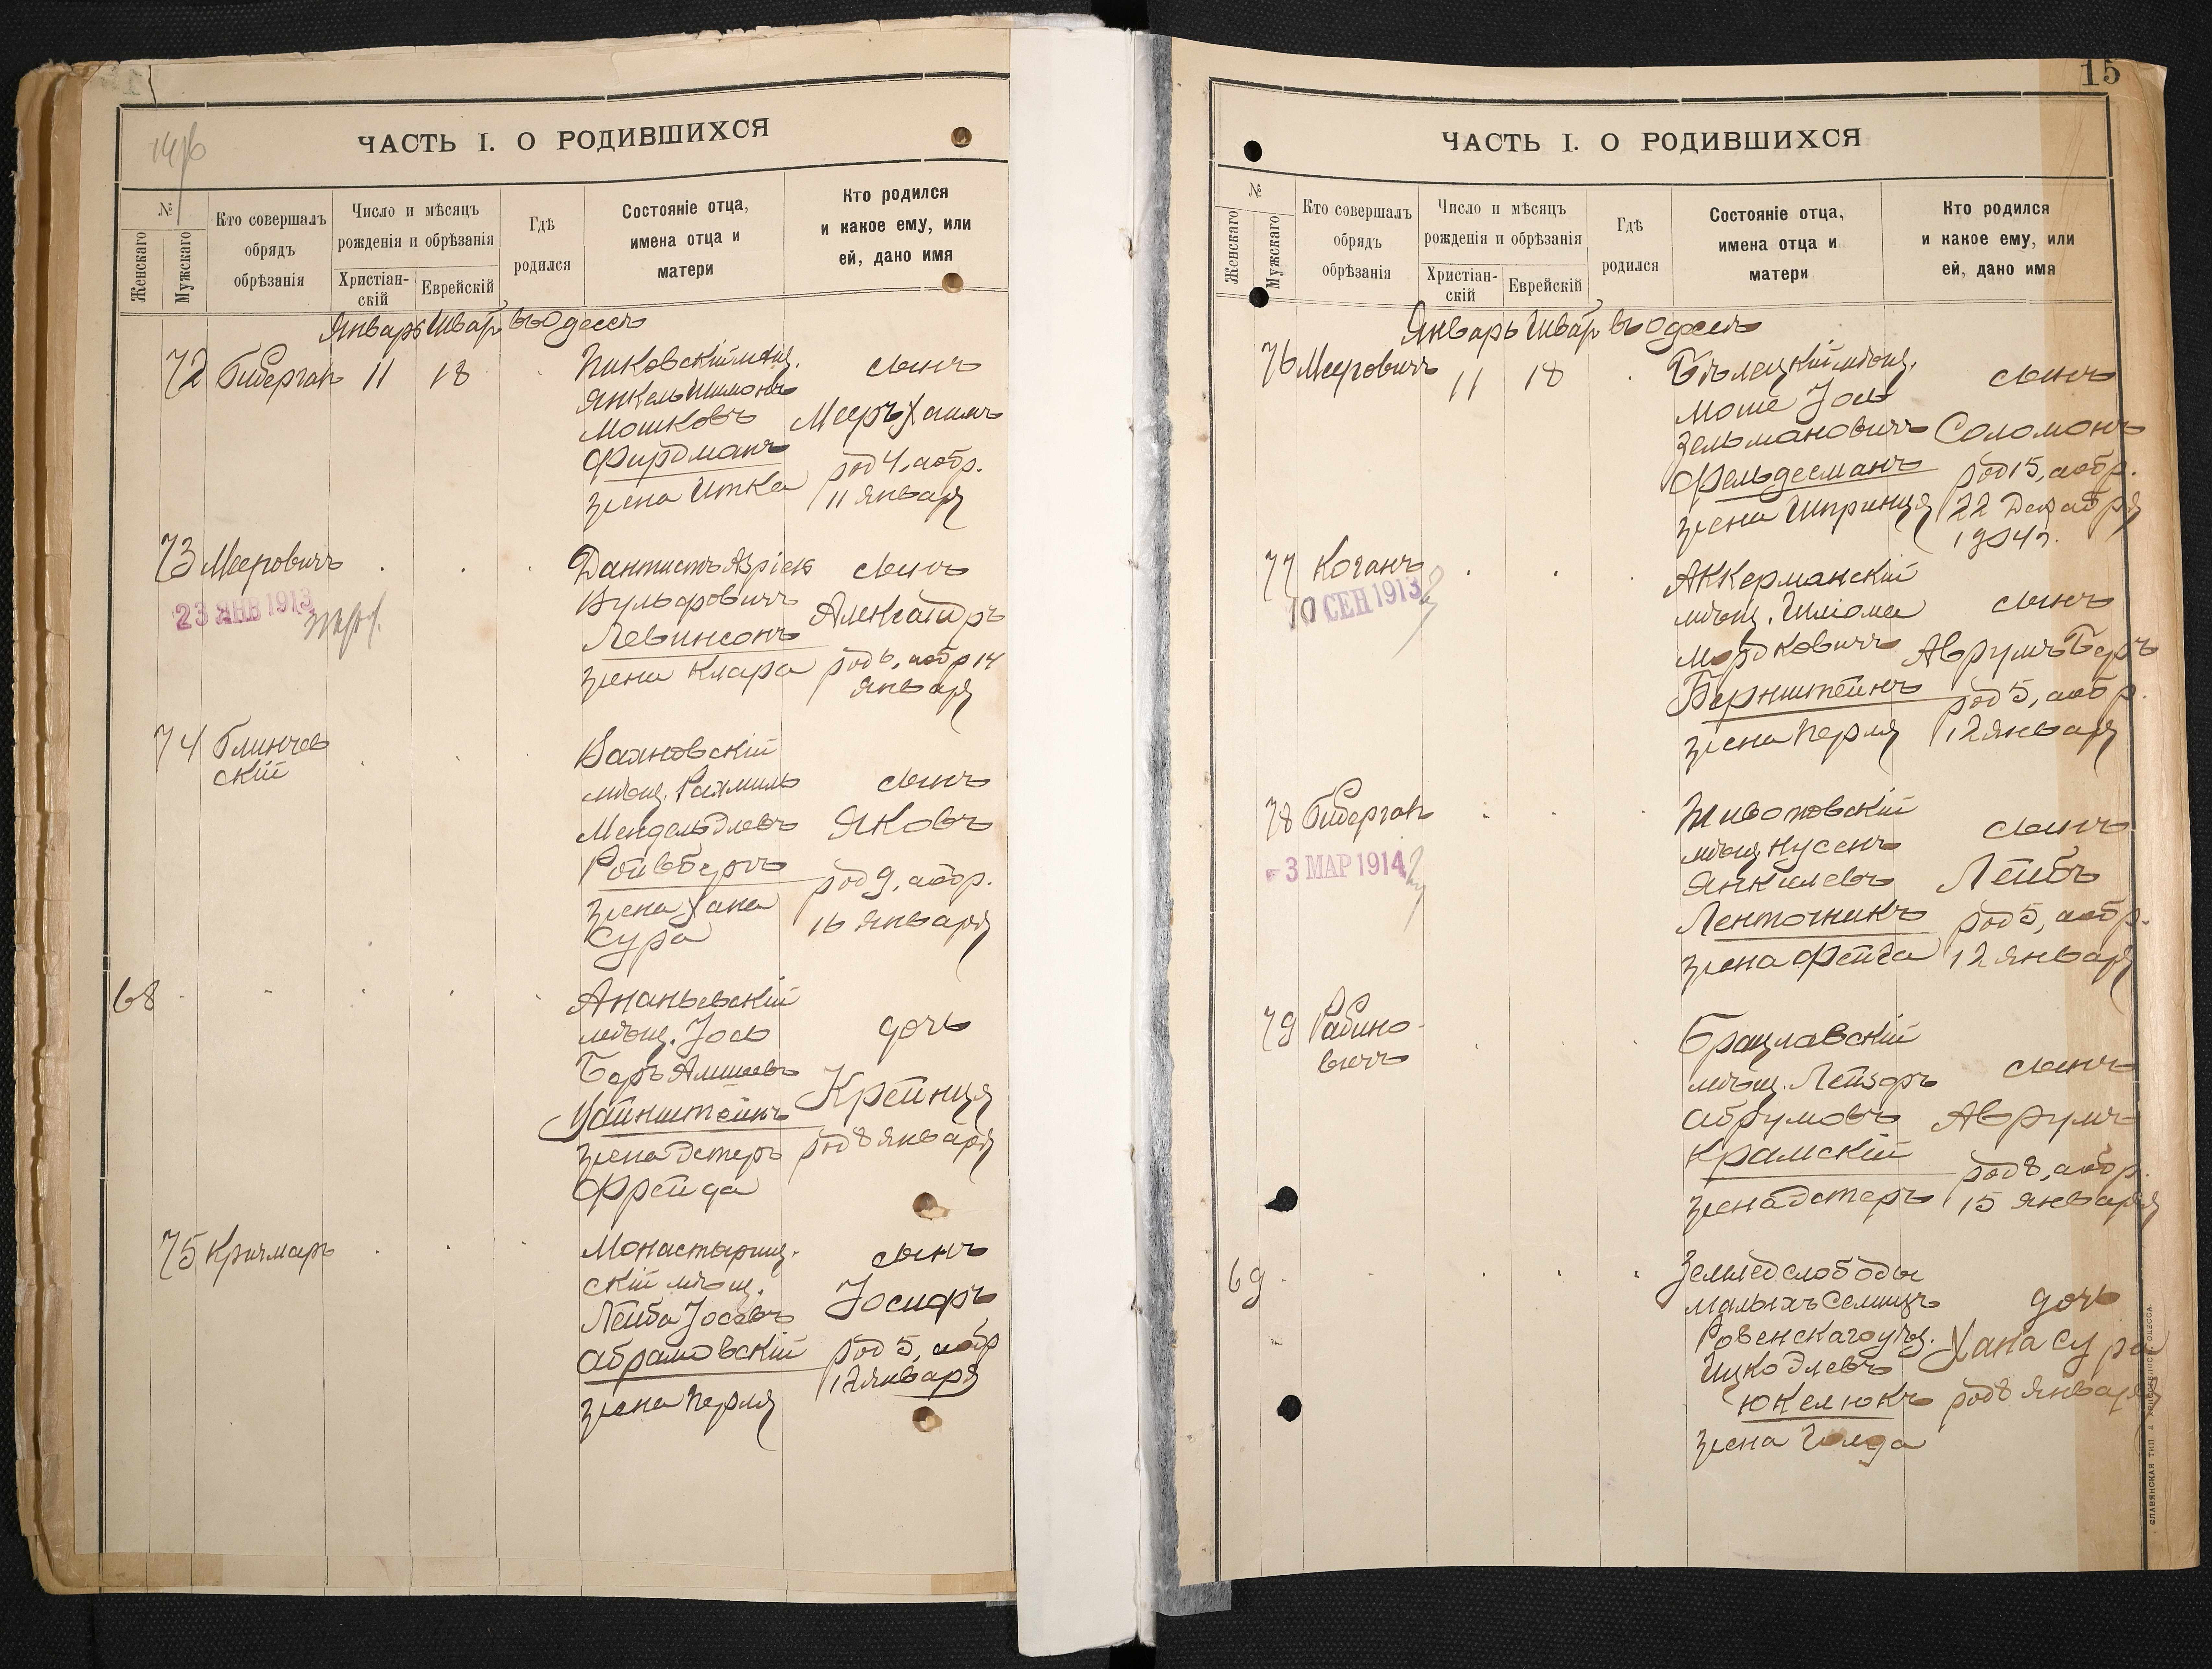 ЧАСТЬ I. О РОДИВШИХСЯ
№
Женскаго
Мужскаго
Кто совершалъ
обрядъ
обрѣзанія
Число и мѣсяцъ
рожденія и обрѣзанія
Христіан-
скій
Еврейскій
Гдѣ
родился
Состояніе отца,
имена отца и
матери
Кто родился
и какое ему, или
ей, дано имя
Январь Шват въ Одессѣ
72 Гиберган 11 18
Пиковскій мѣщ.
Янкель Шимонъ
Мошковъ
Фирдманъ
жена Итка
сынъ
Мееръ Хаимъ
род 4, аобр.
11 Января
73 Мееровичъ
23 ЯНВ 1913
Дантистъ Азріел
Вульфовичъ
Левинсонъ
жена Клара
сынъ
Александръ
род 6, аобр 14
января
74 Глинчев
скій
мѣщ. Рахмиль
Мендель Элевъ
Ройзбергъ
жена Хана
Сура
сынъ
Яковъ
род 9, аобр.
16 Января
68
Ананьевскій
мѣщ. Іось
Беръ Амшеевъ
Уайнштейнъ
жена Эстеръ
Фрейда
дочь
Крейнця
род 8 Января
75 Кришмаръ
Монастырищ-
скій мѣщ.
Лейба Іосевъ
Абрамовскій
жена Перля
сынъ
Іосифъ
род 5, аобр
12 января
15
ЧАСТЬ I. О РОДИВШИХСЯ
№
Женскаго
Мужскаго
Кто совершалъ
обрядъ
обрѣзанія
Число и мѣсяцъ
рожденія и обрѣзанія
Христіан-
скій
Еврейскій
Гдѣ
родился
Состояніе отца,
имена отца и
матери
Кто родился
и какое ему, или
ей, дано имя
Январь Шват въ Одессѣ
76 Мееровичъ 11 18
Бѣлецкій мѣщ.
Моше Іось
Зельмановичъ
Фельдесманъ
жена Шпринця
сынъ
Соломонъ
род 15, аобр.
22 Декабря
1904 г.
77 Коганъ
10 СЕН 1913
Аккерманскій
мѣщ. Шліома
Мордковичъ
Бернштейнъ
жена Перля
сынъ
Аврумъ Беръ
род 5, аобр.
12 января
78 Гиберган
3 МАР 1914
Животовскій
мѣщ Нусенъ
Янкелевъ
Ленточникъ
жена Фейга
сынъ
Лейбъ
род 5, аобр.
12 Января
79 Рабино-
вичъ
Брацлавскій
мѣщ. Лейзеръ
Абрумовъ
Крамскій
жена Эстеръ
сынъ
Аврумъ
род 8, аобр.
15 Января
69
Землед слободы
Малыхъ Селищъ
Ровенскаго уѣз.
Ицко Элевъ
Юкелюкъ
жена Голда
дочь
Хана Сура
род 8 Января